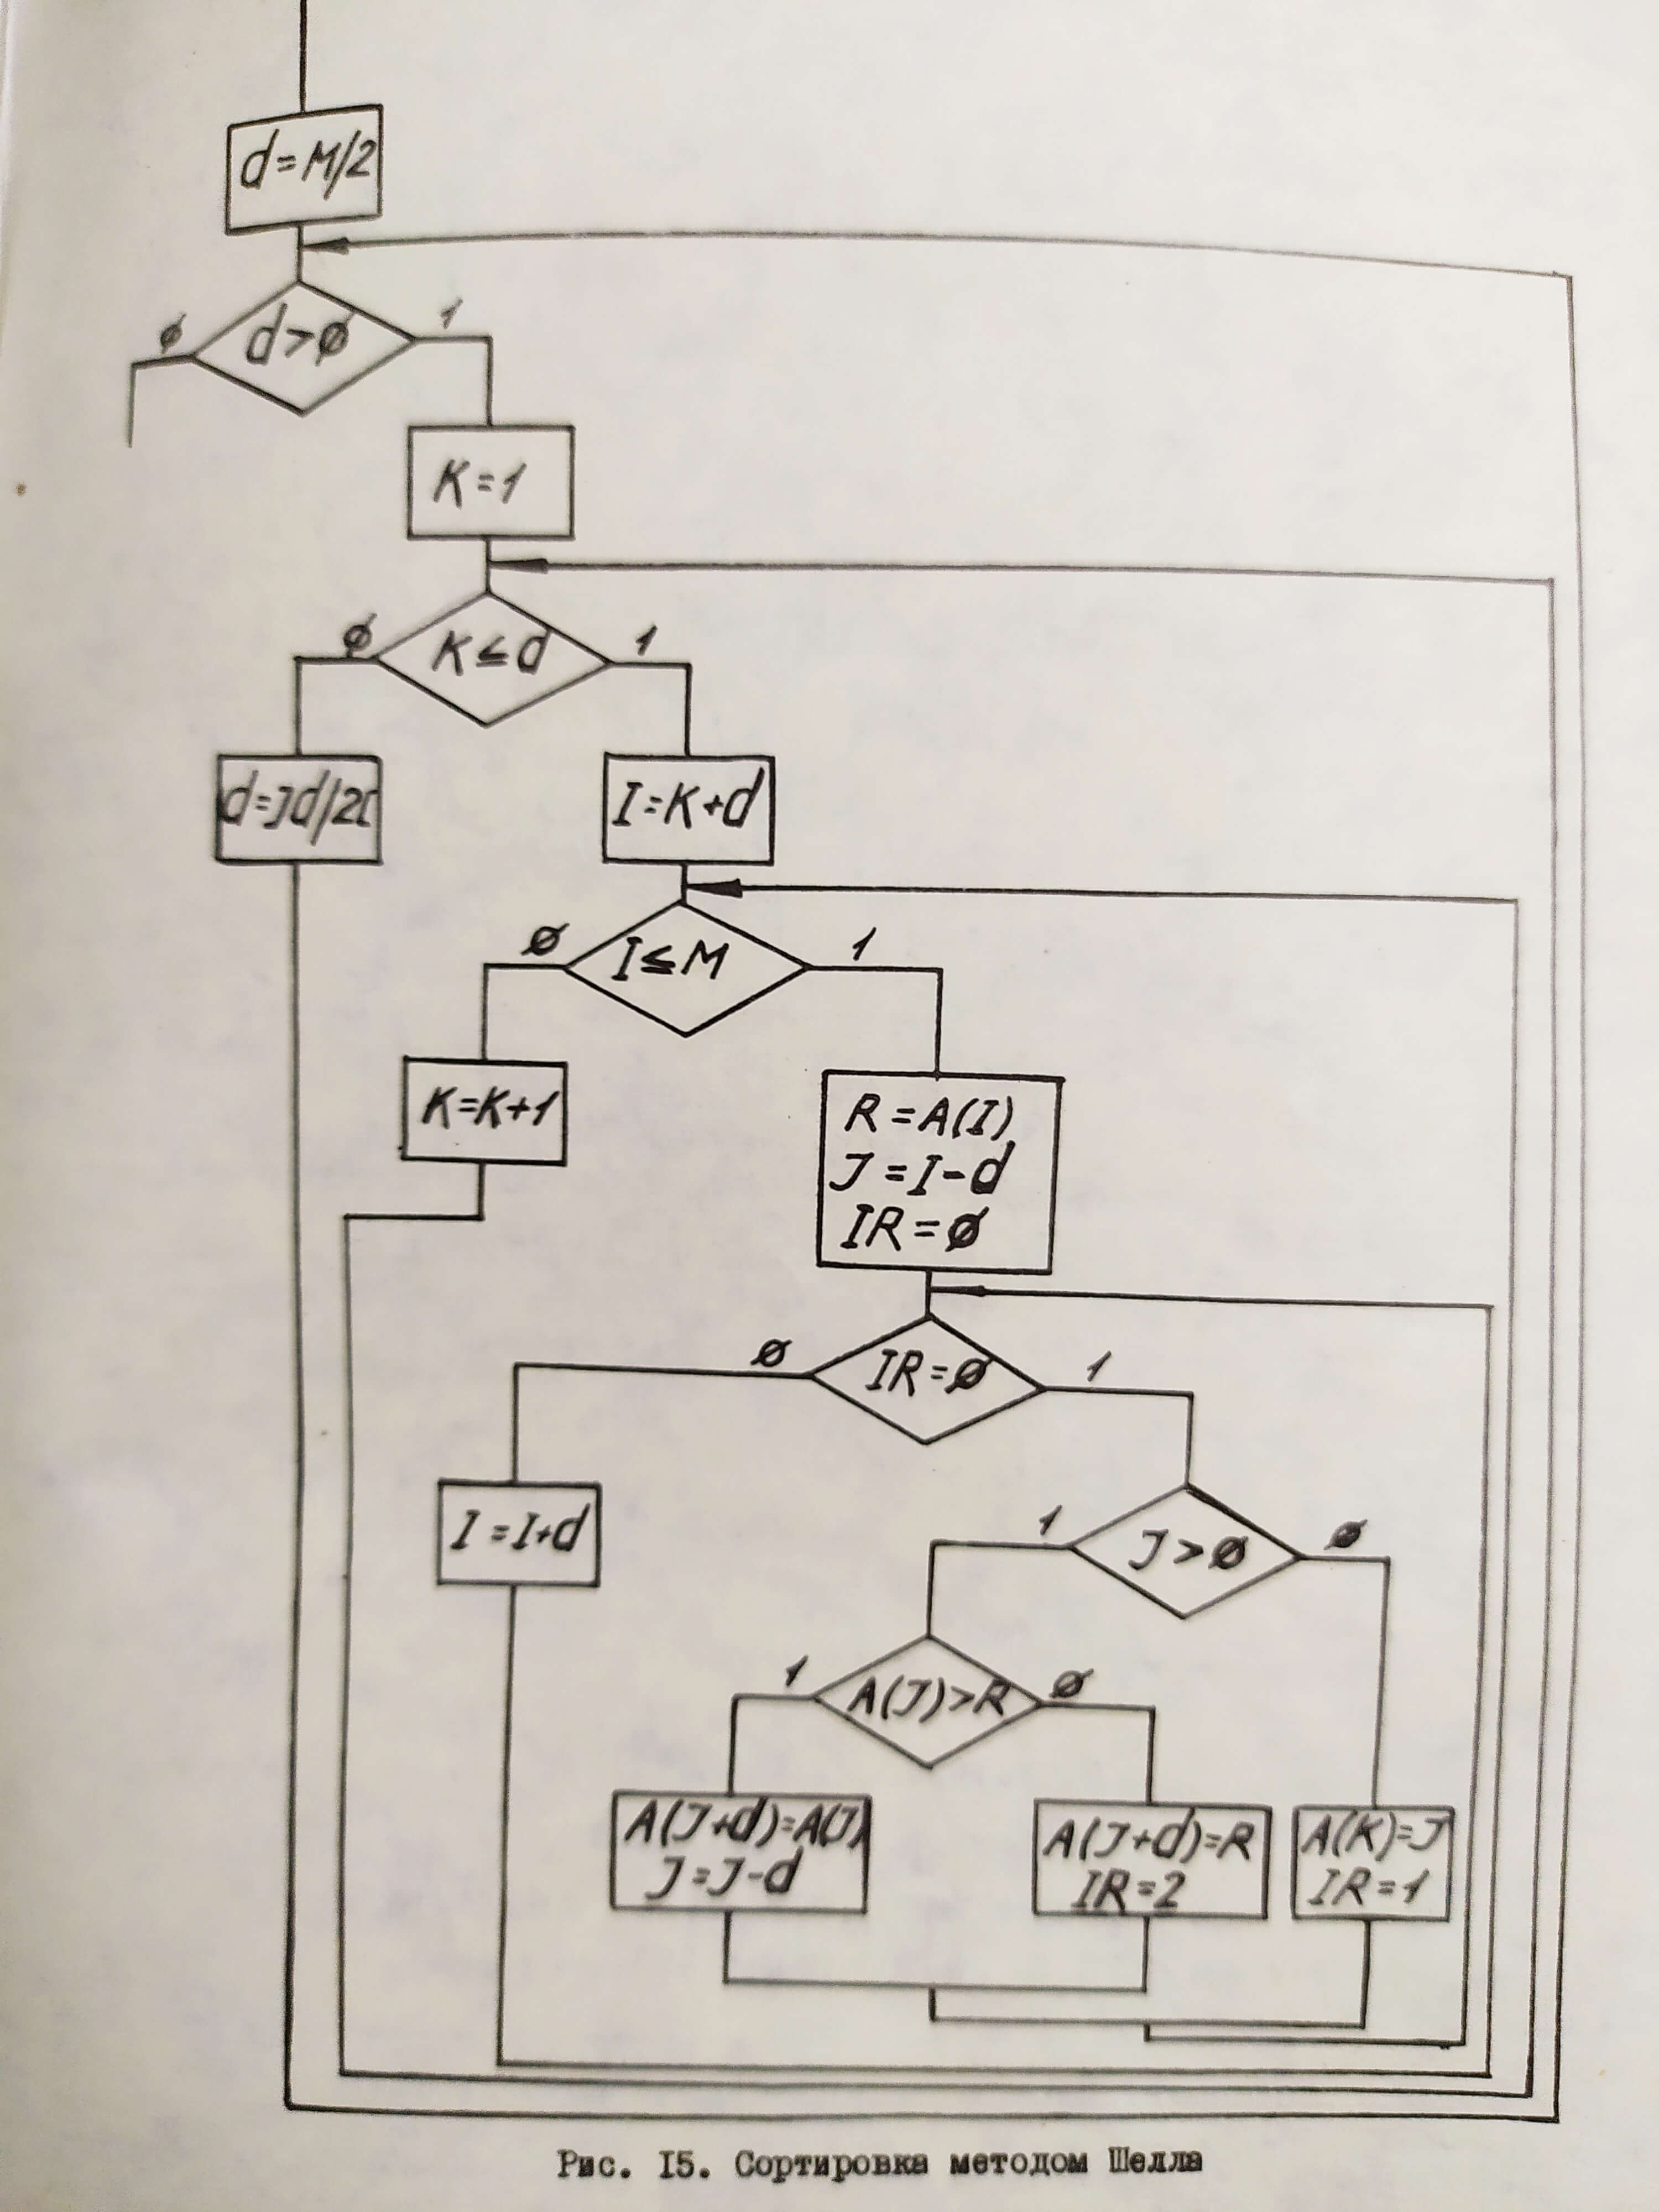 d=M/2
d>ø
ø
1
K=1
K≤d
ø
1
d=]d/2[
I=K+d
I≤M
ø
1
K=K+1
R=A(I)
J=I-d
IR=ø
IR=ø
ø
1
I=I+d
J>ø
1
ø
A(J)>R
1
ø
A(J+d)=A(J)
J=J-d
A(J+d)=R
IR=2
A(K)=J
IR=1
Рис. I5. Сортировка методом Шелла